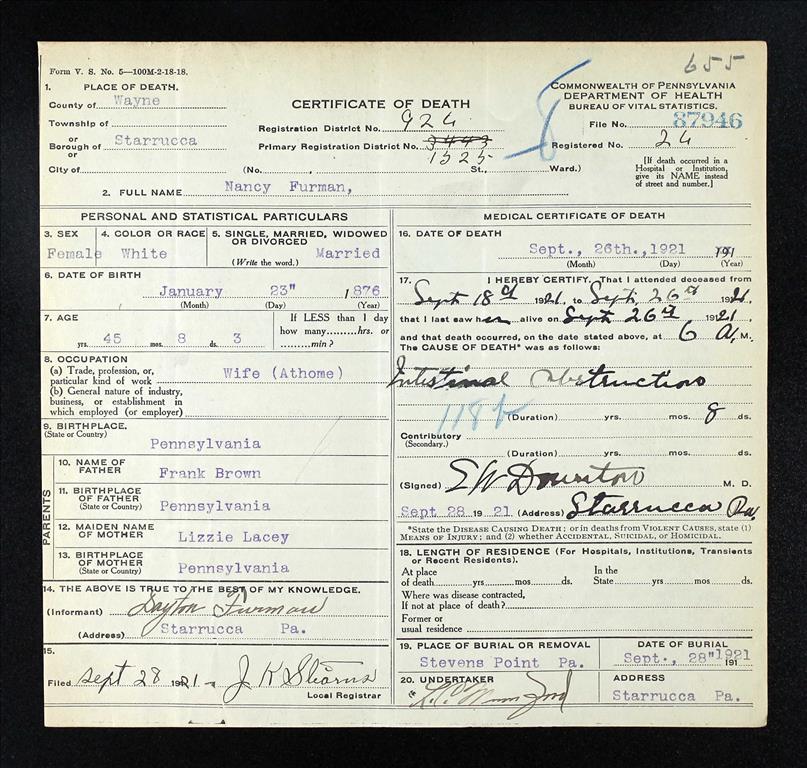 655
Form V. S. No. 5—100M-2-18-18.
1. PLACE OF DEATH.
County of Wayne
Township of
or
Borough of Starrucca
or
City of
CERTIFICATE OF DEATH
Registration District No. 924
Primary Registration District No. 3443
1525
(No. , St., Ward.)
COMMONWEALTH OF PENNSYLVANIA
DEPARTMENT OF HEALTH
BUREAU OF VITAL STATISTICS.
File No. 87946
Registered No. 24
[If death occurred in a
Hospital or Institution,
give its NAME instead
of street and number.]
2. FULL NAME Nancy Furman,
PERSONAL AND STATISTICAL PARTICULARS
3. SEX
Female
4. COLOR OR RACE
White
5. SINGLE, MARRIED, WIDOWED
OR DIVORCED
(Write the word.) Married
6. DATE OF BIRTH
January 23" 1876
(Month) (Day) (Year)
7. AGE
45 yrs. 8 mos. 3 ds.
If LESS than 1 day
how many......hrs. or
.........min?
8. OCCUPATION
(a) Trade, profession, or,
particular kind of work Wife (Athome)
(b) General nature of industry,
business, or establishment in
which employed (or employer)
9. BIRTHPLACE.
(State or Country)
Pennsylvania
PARENTS
10. NAME OF
FATHER Frank Brown
11. BIRTHPLACE
OF FATHER
(State or Country) Pennsylvania
12. MAIDEN NAME
OF MOTHER Lizzie Lacey
13. BIRTHPLACE
OF MOTHER
(State or Country) Pennsylvania
14. THE ABOVE IS TRUE TO THE BEST OF MY KNOWLEDGE.
(Informant) Dayton Furman
(Address) Starrucca Pa.
15.
Filed Sept 28 1921 J K Stearns
Local Registrar
MEDICAL CERTIFICATE OF DEATH
16. DATE OF DEATH
Sept., 26th.,1921 191
(Month) (Day) (Year)
17. I HEREBY CERTIFY, That I attended deceased from
Sept 18th 1921 to Sept 26th 1921
that I last saw her alive on Sept 26th 1921,
and that death occurred, on the date stated above, at 6 A. M.
The CAUSE OF DEATH* was as follows:
Intestinal obstruction
118b
(Duration) yrs. mos. 8 ds.
Contributory
(Secondary.)
(Duration) yrs. mos. ds.
(Signed) E W Downton M. D.
Sept 28 1921 (Address) Starrucca Pa.
*State the DISEASE CAUSING DEATH; or in deaths from VIOLENT CAUSES, state (1)
MEANS OF INJURY; and (2) whether ACCIDENTAL, SUICIDAL, or HOMICIDAL.
18. LENGTH OF RESIDENCE (For Hospitals, Institutions, Transients
or Recent Residents).
At place In the
of death yrs. mos. ds. State yrs. mos. ds.
Where was disease contracted,
If not at place of death?
Former or
usual residence
19. PLACE OF BURIAL OR REMOVAL
Stevens Point Pa.
DATE OF BURIAL
Sept., 28" 1921
191
20. UNDERTAKER
ADDRESS
Starrucca Pa.